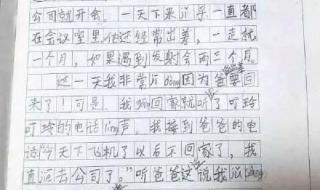 公司就开会。一天下来似乎一直都
在会议室里。他还经常出差,一走就
一个月,如果遇到发射会两三个月。
这一天我非常 dòng 因为爸爸要回
来了!可是,我 回家就听了叮玲
叮玲的电话líng声。我接到爸爸的电
话"今天下飞机了以后不回家了,我
直 去公司了。"听爸爸这 说我